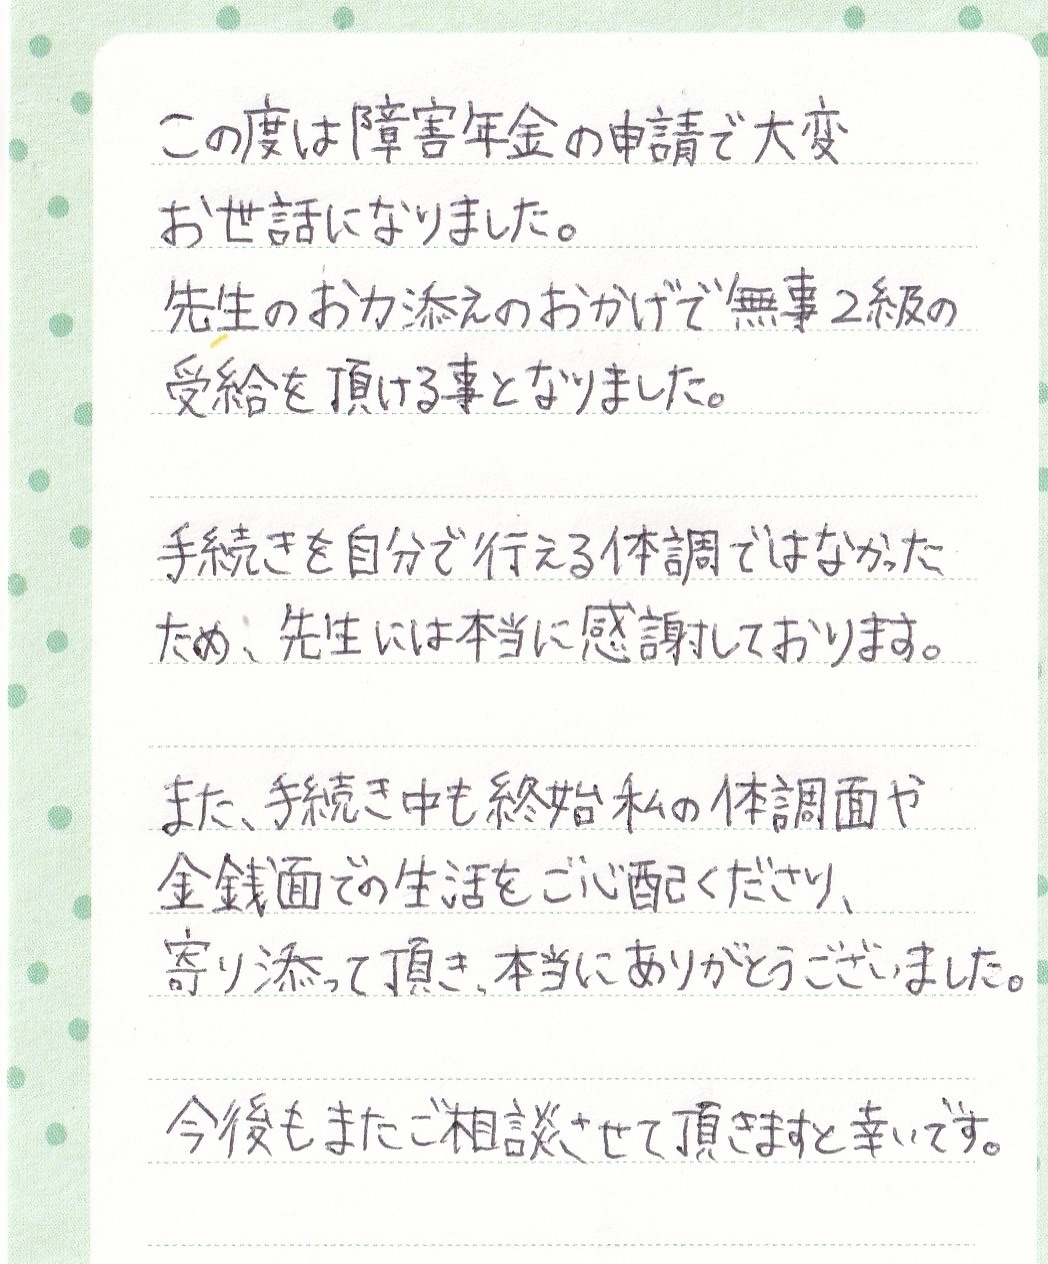 この度は障害年金の申請で大変
お世話になりました。
先生のお力添えのおかげで無事2級の
受給を頂ける事となりました。
手続きを自分で行える体調ではなかった
ため、先生には本当に感謝しております。
また、手続き中も終始私の体調面や
金銭面での生活をご心配くださり、
寄り添って頂き、本当にありがとうございました。
今後もまたご相談させて頂きますと幸いです。